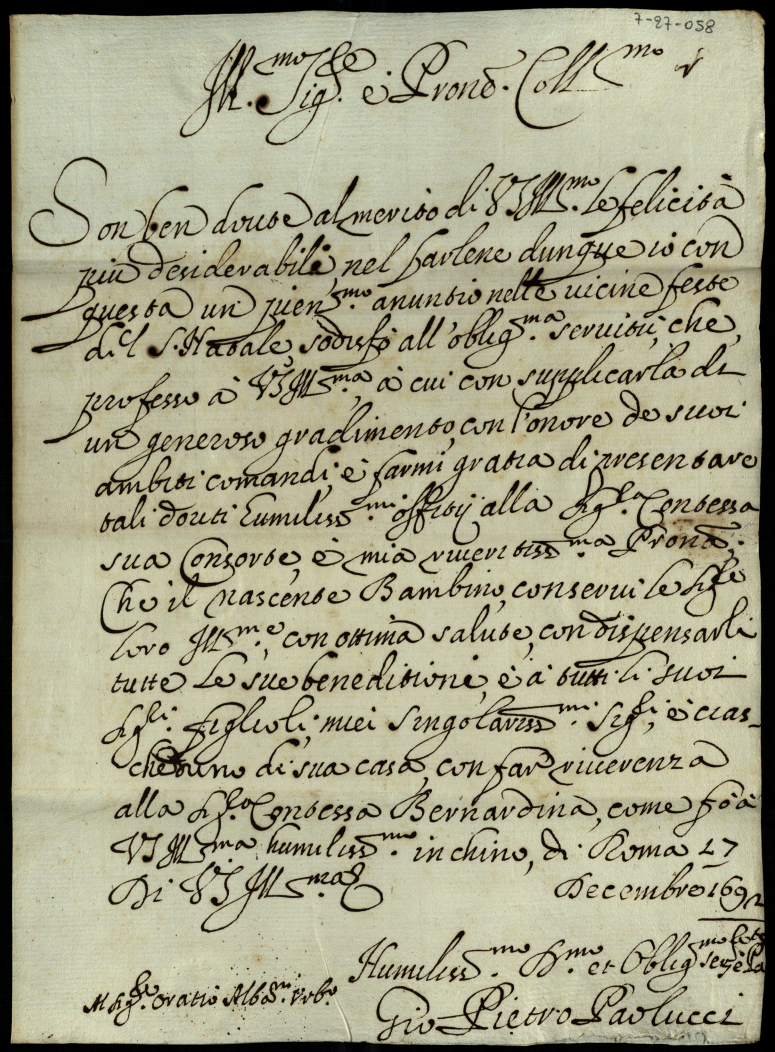 7-27-058
Ill.mo Sig.re e Pron.e Coll.mo
Son ben doute al merito di VS Ill.ma le felicità
più desiderabili, nel farlene dunque io con
questa un pien.mo anuntio nelle vicine feste
del S. Natale, sodisfo all'oblig.ma servitù, che
professo à VS Ill.ma, à cui con supplicarla di
un generoso gradimento, con l'onore de suoi
ambiti comandi, e farmi gratia di presentare
tali douti humiliss.mi offitij alla Sig.ra Contessa
sua Consorte, e mia riveritiss.ma Prona.
Che il nascente Bambino, conservi le Sig.rie
loro Ill.me, con ottima salute, con dispensarli
tutte le sue beneditioni, e à tutti li suoi
Sig.ri figlioli, miei singolariss.mi Sig.ri, e cias-
cheduno di sua casa, con far riverenza
alla Sig.ra Contessa Bernardina, come fò à
VS Ill.ma humiliss.mo inchino, di Roma 27
Di VS Ill.ma Decembre 1692
Humiliss.mo D.mo et Oblig.mo
Al Sig.re Oratio Alb.ni Urb.o
Gio Pietro Paolucci